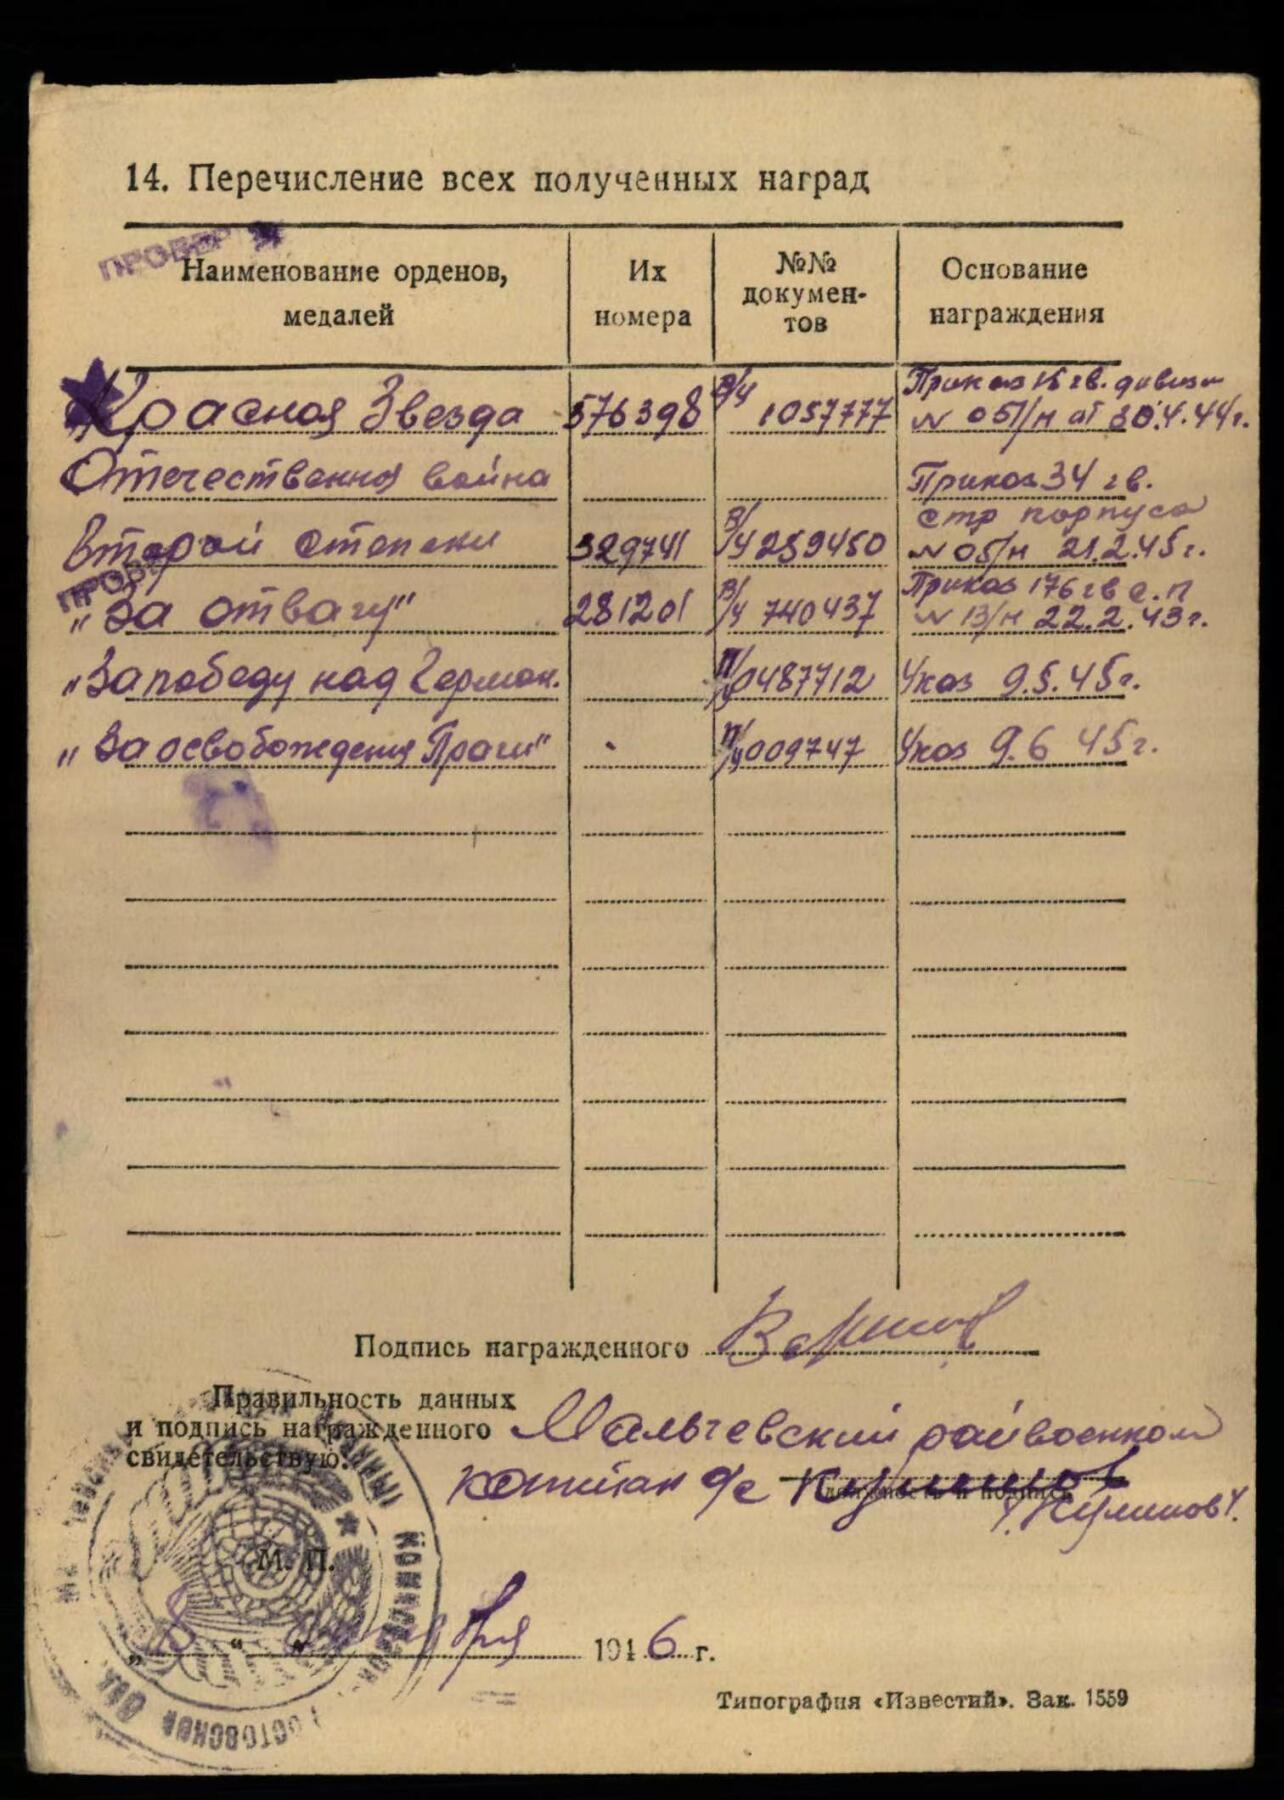 14. Перечисление всех полученных наград
ПРОВЕР
Наименование орденов, медалей
Их номера
№№ документов
Основание награждения
Красная Звезда 576398 В/ч 1057777 Приказ 15 гв. дивизи
№ 05/н от 30.4.44 г.
Отечественная война Приказ 34 гв.
стр корпуса
Второй степени 329741 В/ч 259450 № 05/н 21.2.45 г.
ПРОВЕ
"За отвагу" 281201 В/ч 740437 Приказ 176 гв с.п
№ 13/н 22.2.43 г.
"За победу над Герман. 0487712 Указ 9.5.45 г.
"За освобождения Праги" 009747 Указ 9.6 45 г.
Подпись награжденного
Правильность данных
и подпись награжденного
свидетельствую:
Мальчевский райвоенком
капитан а/с
должность и подпись
Куликов
М. П.
1946 г.
РОСТОВСКОЙ ОБЛ.
Типография «Известий». Зак. 1559